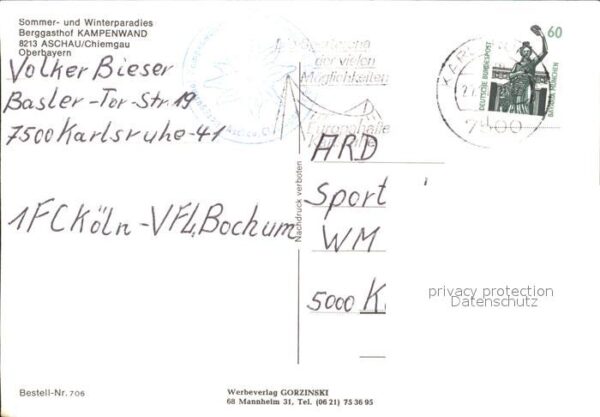 Sommer- und Winterparadies
Berggasthof KAMPENWAND
8213 ASCHAU/Chiemgau
Oberbayern
Volker Bieser
Basler-Tor-Str. 19
7500 Karlsruhe-41
1FC Köln-VFL Bochum
Nachdruck verboten
der vielen
Möglichkeiten
Europahalle
7500
60
DEUTSCHE BUNDESPOST
BAVARIA MÜNCHEN
ARD
Sport
WM
5000 K
privacy protection
Datenschutz
Bestell-Nr. 706
Werbeverlag GORZINSKI
68 Mannheim 31, Tel. (06 21) 75 36 95